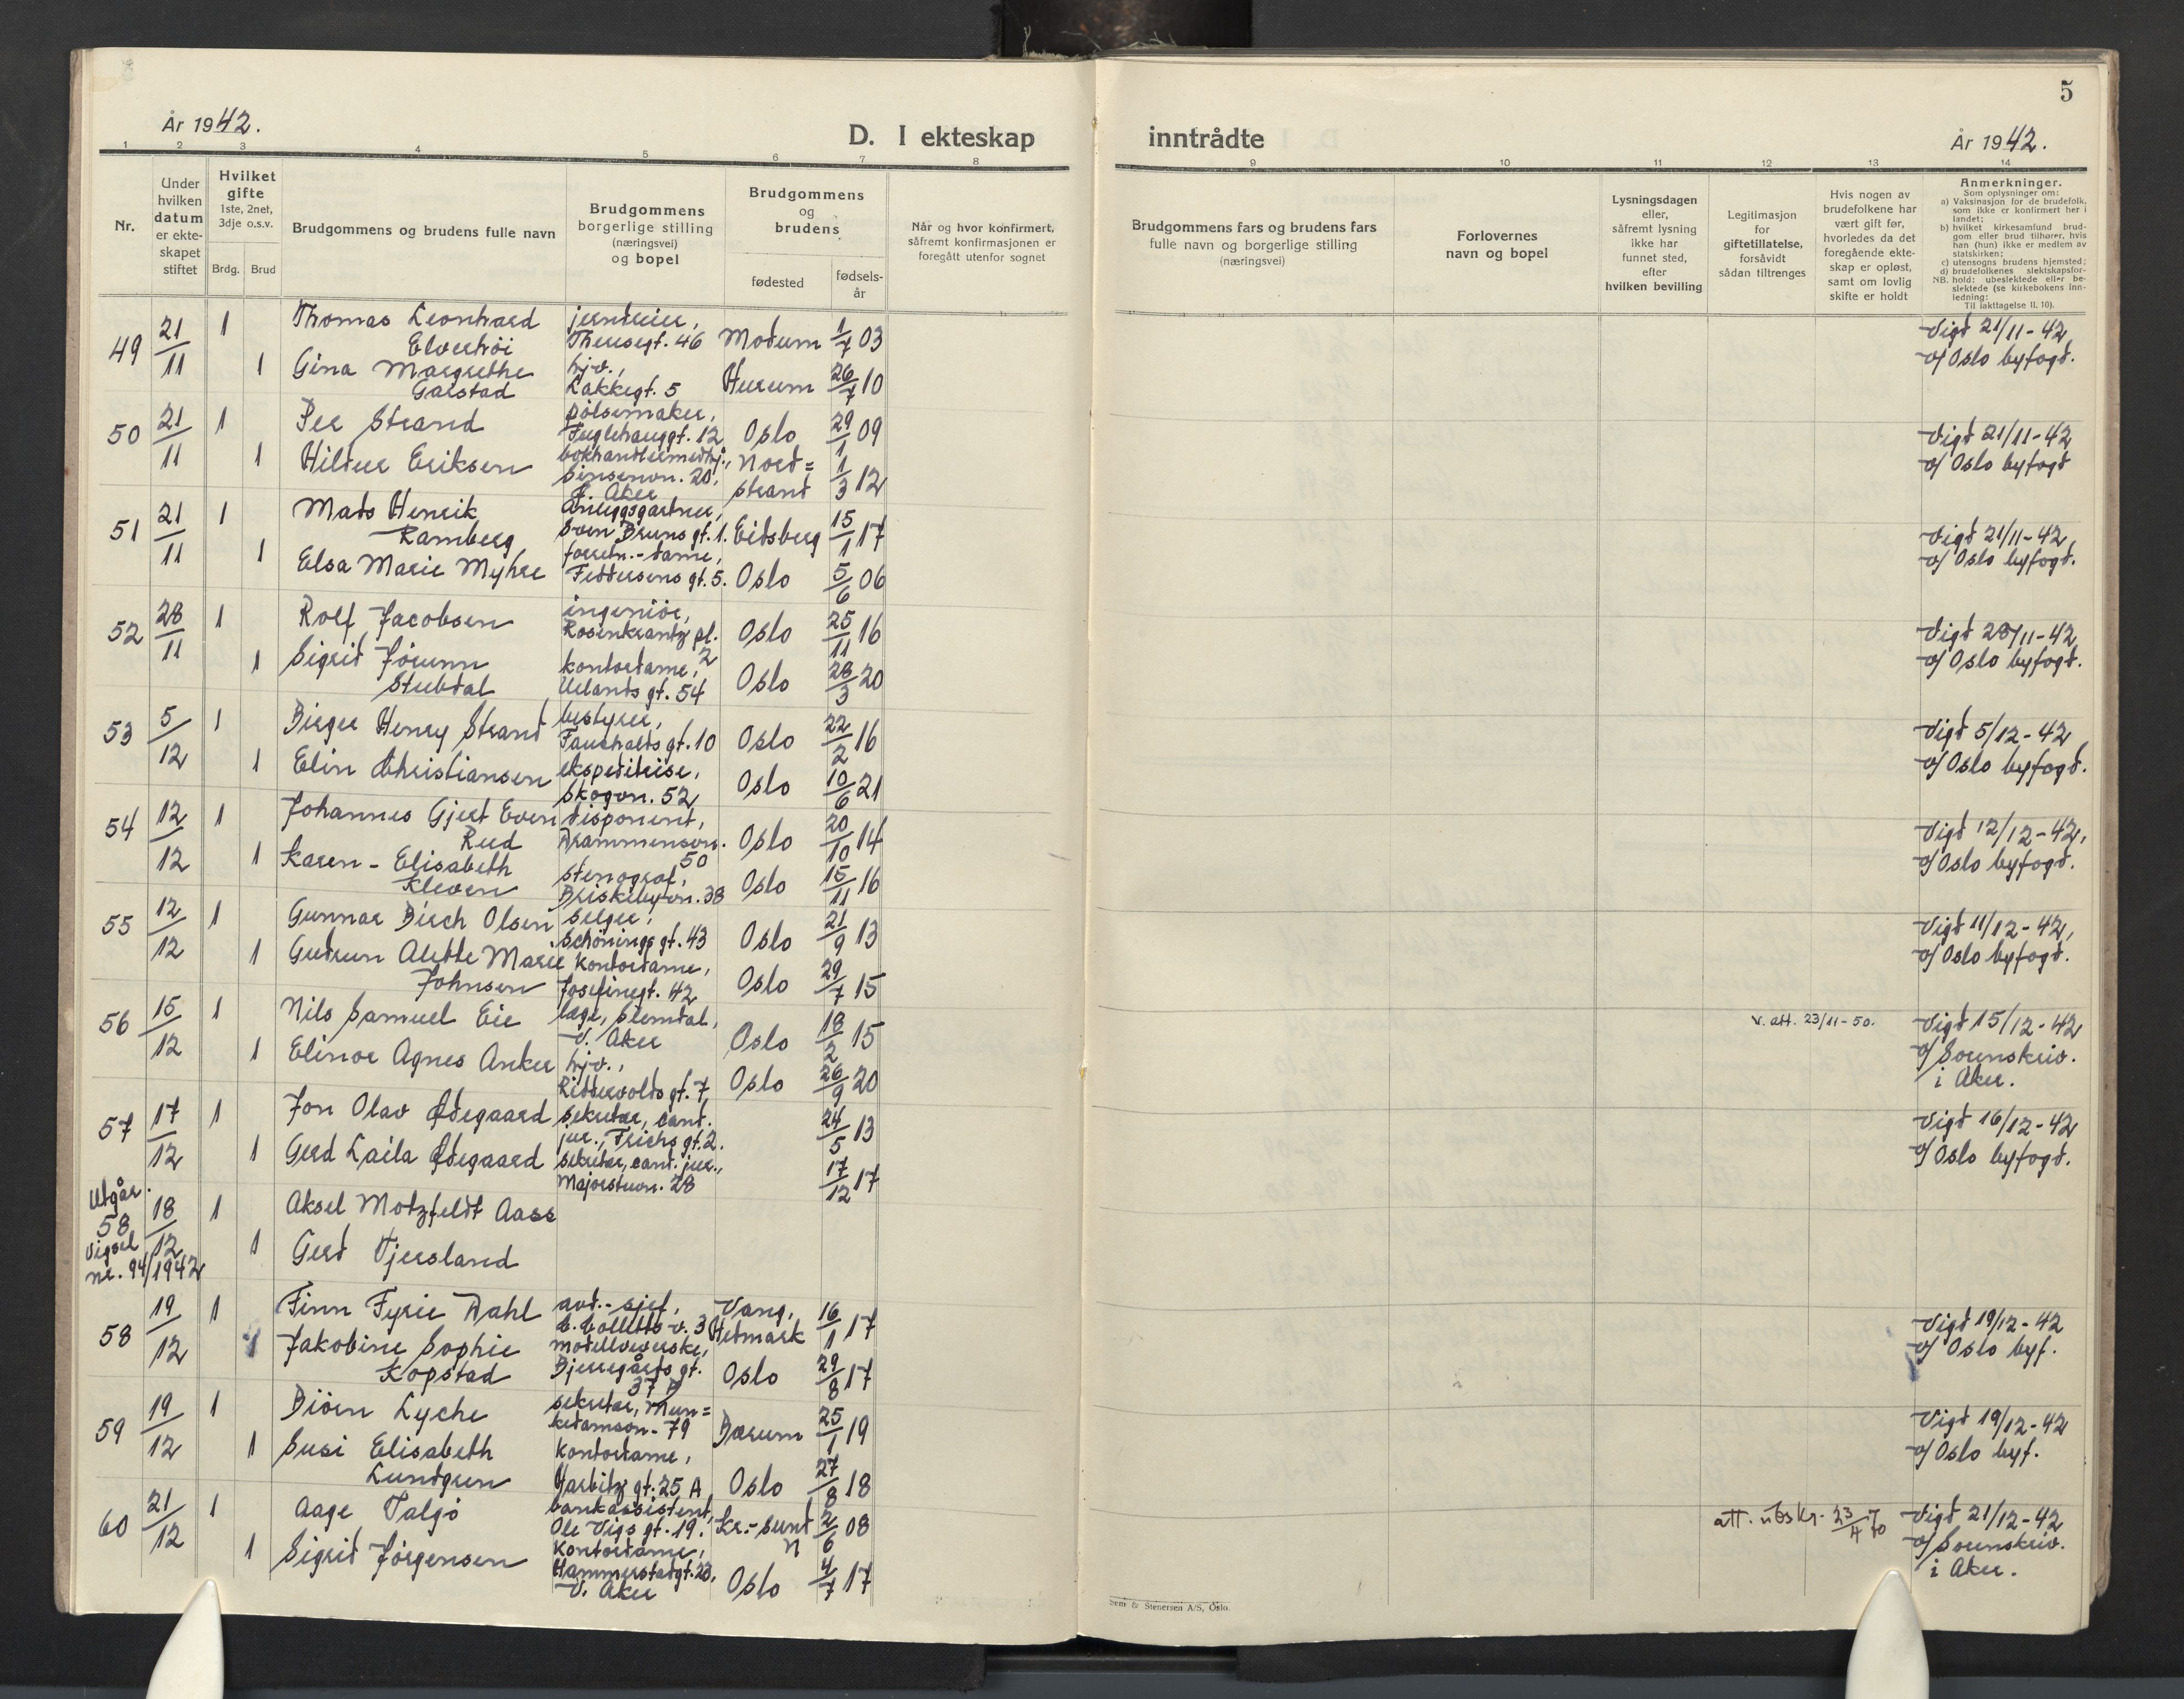 År 1942.
D. I ekteskap
inntrådte
5
År 1942.
1 2 3 4 5 6 7 8 9 10 11 12 13 14
Nr.
Under
hvilken
datum
er ekte-
skapet
stiftet
Hvilket
gifte
1ste, 2net,
3dje o.s.v.
Brdg.
Brud
Brudgommens og brudens fulle navn
Brudgommens
borgerlige stilling
(næringsvei)
og bopel
Brudgommens
og
brudens
fødested
fødsels-
år
Når og hvor konfirmert,
såfremt konfirmasjonen er
foregått utenfor sognet
Brudgommens fars og brudens fars
fulle navn og borgerlige stilling
(næringsvei)
Forlovernes
navn og bopel
Lysningsdagen
eller,
såfremt lysning
ikke har
funnet sted,
efter
hvilken bevilling
Legitimasjon
for
giftetillatelse,
forsåvidt
sådan tiltrenges
Hvis nogen av
brudefolkene har
vært gift før,
hvorledes da det
foregående ekte-
skap er opløst,
samt om lovlig
skifte er holdt
Anmerkninger.
Som oplysninger om:
a) Vaksinasjon for de brudefolk,
som ikke er konfirmert her i
landet;
b) hvilket kirkesamfund brud-
gom eller brud tilhører, hvis
han (hun) ikke er medlem av
statskirken;
c) utensogns brudens hjemsted;
d) brudefolkenes slektskapsfor-
NB. hold: ubeslektede eller be-
slektede (se kirkebokens inn-
ledning:
Til iakttagelse II. 10).
49 21/11 1 Thomas Leonhard Elverhöi
jerndreier, Theresegt. 46 Modum 1/7 03
1 Gina Margrethe Garstad
hjv., Lakkegt. 5 Hurum 26/7 10
Vigd 21/11-42, a/ Oslo byfogd.
50 21/11 1 Per Strand
pölsemaker, Fuglehauggt. 12 Oslo 29/1 09
1 Hildur Eriksen
bokhandlermedhj., Sinsenvn. 20, Ø. Aker Nord=strand 1/3 12
Vigd 21/11-42 a/ Oslo byfogd
51 21/11 1 Mads Henrik Ramberg
Anleggsgartner, Sven Bruns gt. 1. Eidsberg 15/1 17
1 Elsa Marie Myhre
forretn.-dame, Feddersens gt. 5. Oslo 5/6 06
Vigd 21/11-42, a/ Oslo byfogd.
52 28/11 1 Rolf Jacobsen
ingeniör, Rosenkrantz pl. 2 Oslo 25/11 16
1 Sigrid Jörunn Stubdal
kontordame, Uelands gt. 54 Oslo 28/3 20
Vigd 28/11-42, a/ Oslo byfogd.
53 5/12 1 Birger Henry Strand
bestyrer, Fauchalds gt. 10 Oslo 22/2 16
1 Elin Christiansen
ekspeditrise, Skogvn. 52 Oslo 10/6 21
Vigd 5/12-42, a/ Oslo byfogd.
54 12/12 1 Johannes Gjert Even Rud
disponent, Drammensvn. 50 Oslo 20/10 14
1 Karen-Elisabeth Kleven
stenograf, Briskebyvn. 38 Oslo 15/11 16
Vigd 12/12-42, a/ Oslo byfogd.
55 12/12 1 Gunnar Birch Olsen
selger, Schönings gt. 43 Oslo 21/9 13
1 Gudrun Alette Marie Johnsen
Kontordame, Josefinegt. 42 Oslo 29/7 15
Vigd 11/12-42, a/ Oslo byfogd.
56 15/12 1 Nils Samuel Eie
læge, Slemdal, V. Aker Oslo 18/2 15
1 Elinor Agnes Anker
hjv., Riddervolds gt. 7, Oslo 26/9 20
v. att. 23/11-50.
Vigd 15/12-42 a/ Sorenskriv. i Aker.
57 17/12 1 Jon Olav Ødegaard
sekretær, cand. jur., Frichs gt. 2. 24/5 13
1 Gerd Laila Ødegaard
sekretær, cand. jur., Majorstuvn. 28 17/12 17
Vigd 16/12-42 a/ Oslo byfogd.
Utgår.
58 18/12 1 Aksel Motzfeldt Aass
Vigsel nr. 94/1942
1 Gerd Tjersland
58 19/12 1 Finn Fyrie Dahl
avd.-sjef, C. Colletts v. 3 Vang, Hedmark 16/1 17
1 Jakobine Sophie Kopstad
modellveverske, Bjerregårds gt. 37 B Oslo 29/8 17
Vigd 19/12-42 a/ Oslo byf.
59 19/12 1 Biörn Lyche
sekretær, Mun=kedamsvn. 79 Bærum 25/1 19
1 Susi Elisabeth Lundgren
Kontordame, Harbitz gt. 25 A Oslo 27/8 18
Vigd 19/12-42 a/ Oslo byf.
60 21/12 1 Aage Talgö
bankassistent, Ole Vigs gt. 19. Kr.-sund N 2/6 08
1 Sigrid Jörgensen
Kontordame, Hammerstadgt. 23, V. Aker Oslo 4/7 17
att. utskr. 23/4 70
Vigd 21/12-42 a/ Sorenskriv. i Aker.
Sem & Stenersen A/S, Oslo.